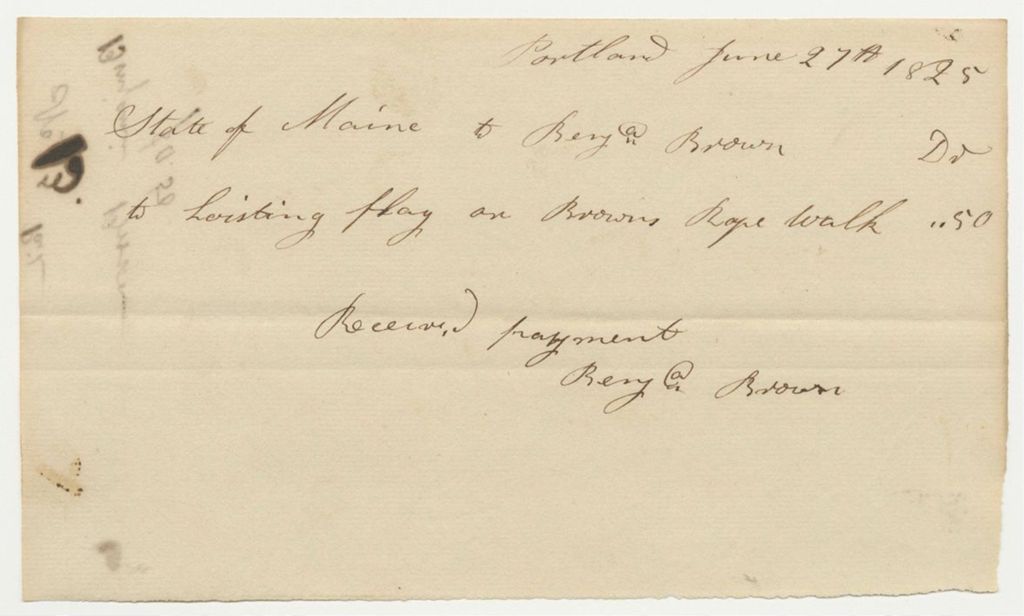 Portland June 27th 1825
State of Maine to Benja Brown Dr
to hoisting flag on Browns Rope Walk "50
Received payment
Benja Brown